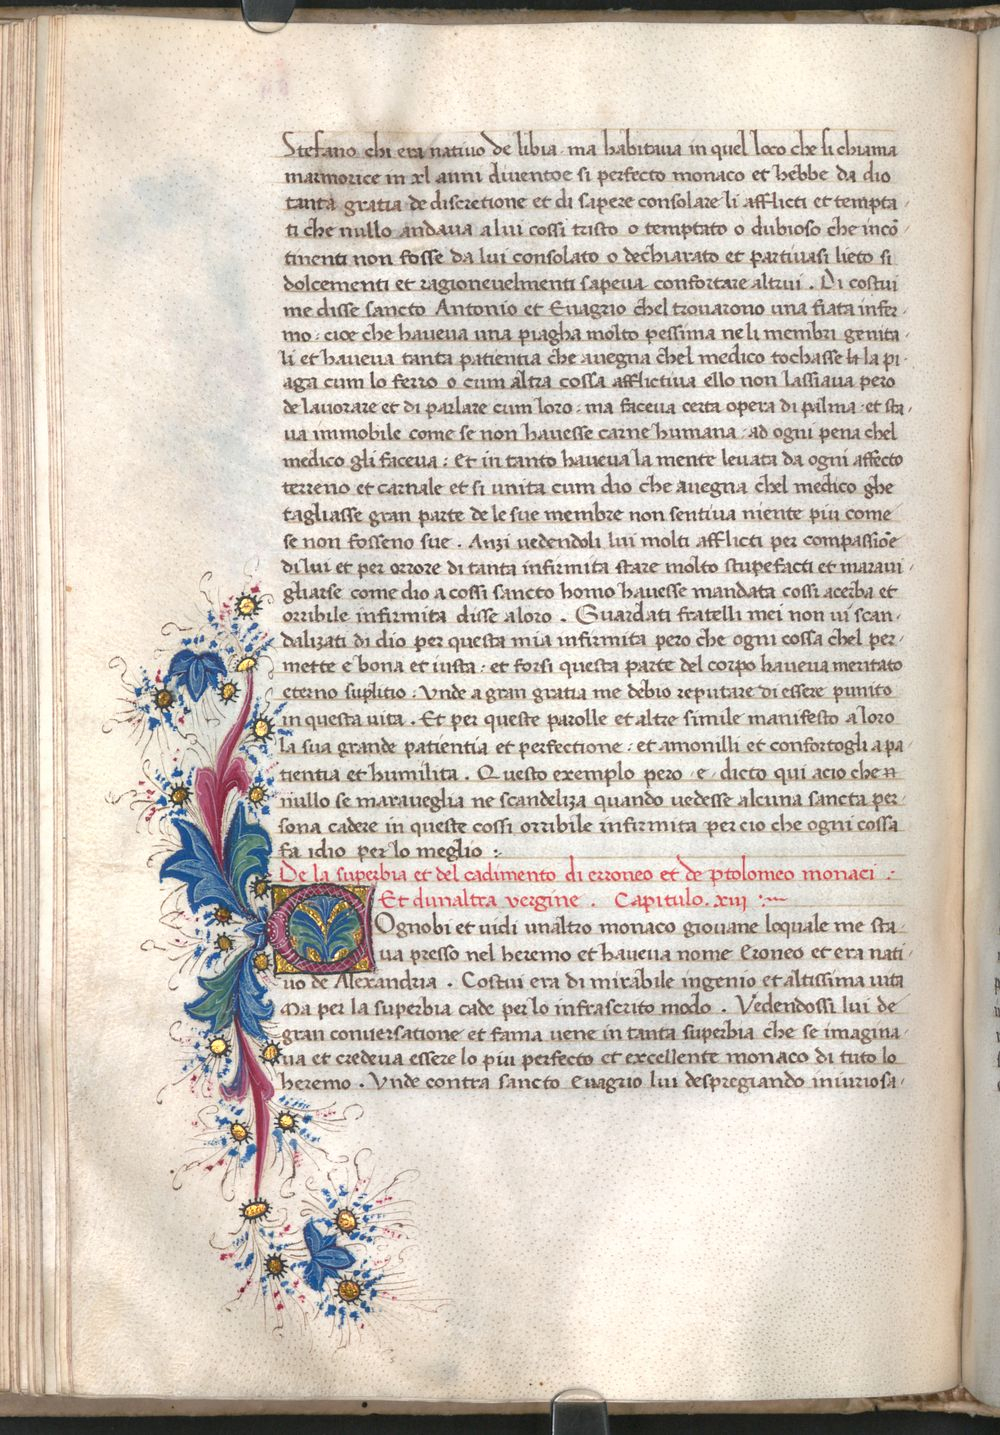 Stefano chi era natiuo de libia · ma habitaua in quel loco che si chiama
marmorice in xl anni diuentoe si perfecto monaco et hebbe da dio
tanta gratia de discretione et di sapere consolare li afflicti et tempta
ti che nullo andaua a lui cossi tristo o temptato o dubioso che incō
tinenti non fosse da lui consolato o dechiarato et partiuasi lieto si
dolcementi et ragioneuelmenti sapeua confortare altrui . Di costui
me disse sancto Antonio et Euagrio chel trouarono una fiata infir-
mo · cioe che haueua una piagha molto pessima ne li membri genita-
li et haueua tanta patientia che auegna chel medico tochasse la pi-
aga cum lo ferro o cum altra cossa afflictiua ello non lassaua pero
de lauorare et di parlare cum loro · ma faceua certa opera di palma · et sta-
ua immobile come se non hauesse carne humana · ad ogni pena chel
medico gli faceua : Et in tanto haueua la mente leuata da ogni affecto
terreno et carnale et si unita cum dio che auegna chel medico ghe
tagliasse gran parte de le sue membre non sentiua niente piu come
se non fosseno sue . Anzi uedendoli lui molti afflicti per compassiōe
di lui et per orrore di tanta infirmita stare molto stupefacti et maraui-
gliarse come dio a cossi sancto homo hauesse mandata cossi acerba et
orribile infirmita disse a loro . Guardati fratelli mei non ui scan-
dalizati di dio per questa mia infirmita pero che ogni cossa chel per-
mette e bona et iusta · et forsi questa parte del corpo haueua meritato
eterno suplitio · Vnde a gran gratia me debio reputare di essere punito
in questa uita . Et per queste parolle et altre simile manifesto a loro
la sua grande patientia et perfectione · et amonilli et confortogli a pa-
tientia et humilita . Questo exemplo pero · e · dicto qui acio che n̄
nullo se maraueglia ne scandeliza quando uedesse alcuna sancta per-
sona cadere in queste cossi orribile infirmita per cio che ogni cossa
fa idio per lo meglio :
De la superbia et del cadimento di erroneo et de ptolomeo monaci .
Et dunaltra vergine . Capitulo . xiii :
COgnobi et uidi unaltro monaco giouane loquale me sta-
ua presso nel heremo et haueua nome Eroneo et era nati-
uo de Alexandria . Costui era di mirabile ingenio et altissima uita
Ma per la superbia cade per lo infrascrito modo . Vedendossi lui de
gran conuersatione et fama uene in tanta superbia che se imagina-
ua et credeua essere lo piu perfecto et excellente monaco di tuto lo
heremo . Vnde contra sancto Euagrio lui despregiando iniuriosa-